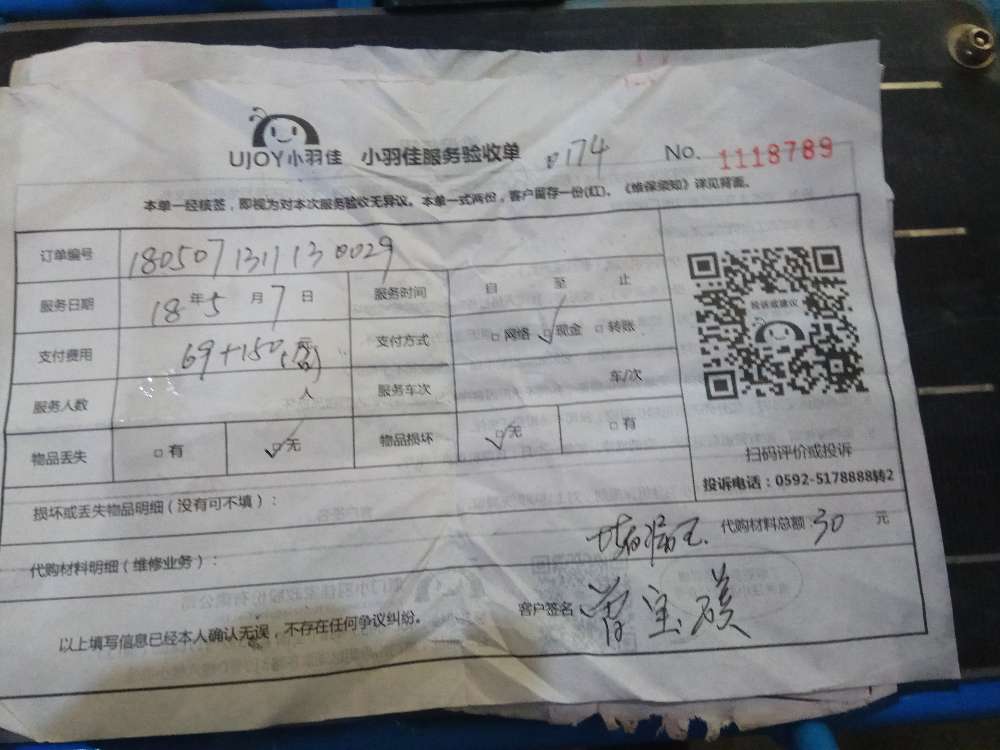 UJOY小羽佳 小羽佳服务验收单 174 No. 1118789
本单一经核签，即视为对本次服务验收无异议。本单一式两份，客户留存一份(红)。《维保须知》详见背面。
订单编号 180507131113 0029
服务日期 18年5月7日 服务时间 自 至 止
支付费用 69+150 支付方式 □网络 □现金 □转账
服务人数 人 服务车次 车/次
物品丢失 □有 □无 物品损坏 □无 □有
投诉或建议
扫码评价或投诉
投诉电话：0592-5178888转2
损坏或丢失物品明细（没有可不填）：
代购材料明细（维修业务）： 堵漏王. 代购材料总额：30 元
以上填写信息已经本人确认无误，不存在任何争议纠纷。 客户签名 宝